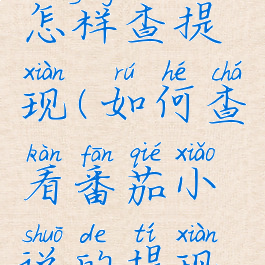 怎样查提
xiàn rú hé chá
现(如何查
kàn fān qié xiǎo
看番茄小
shuō de tí xiàn
说的提现